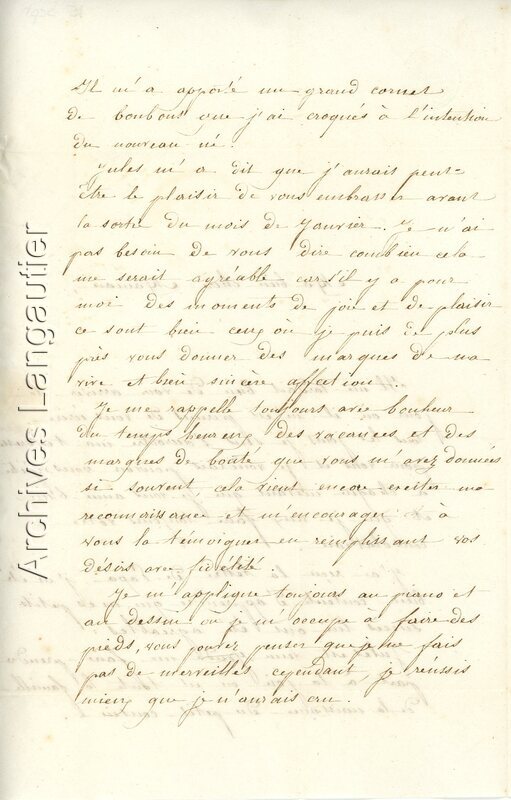 Il m'a apporté un grand cornet
de bonbons que j'ai croqués à l'intention
du nouveau né.
Jules m'a dit que j'aurais peut-
être le plaisir de vous embrasser avant
la sortie du mois de Janvier. Je n'ai
pas besoin de vous dire combien cela
me serait agréable car s'il y a pour
moi des moments de joie et de plaisir
ce sont bien ceux où je puis de plus
près vous donner des marques de ma
vive et bien sincère affection.
Je me rappelle toujours avec bonheur
du temps heureux des vacances et des
marques de bonté que vous m'avez données
si souvent, cela vient encore exciter ma
reconnaissance et m'encourager à
vous la témoigner en remplissant vos
désirs avec fidélité.
Je m'applique toujours au piano et
au dessin où je m'occupe à faire des
pieds, vous pouvez penser que je ne fais
pas de merveilles cependant, je réussis
mieux que je n'aurais cru.
Archives Langautier